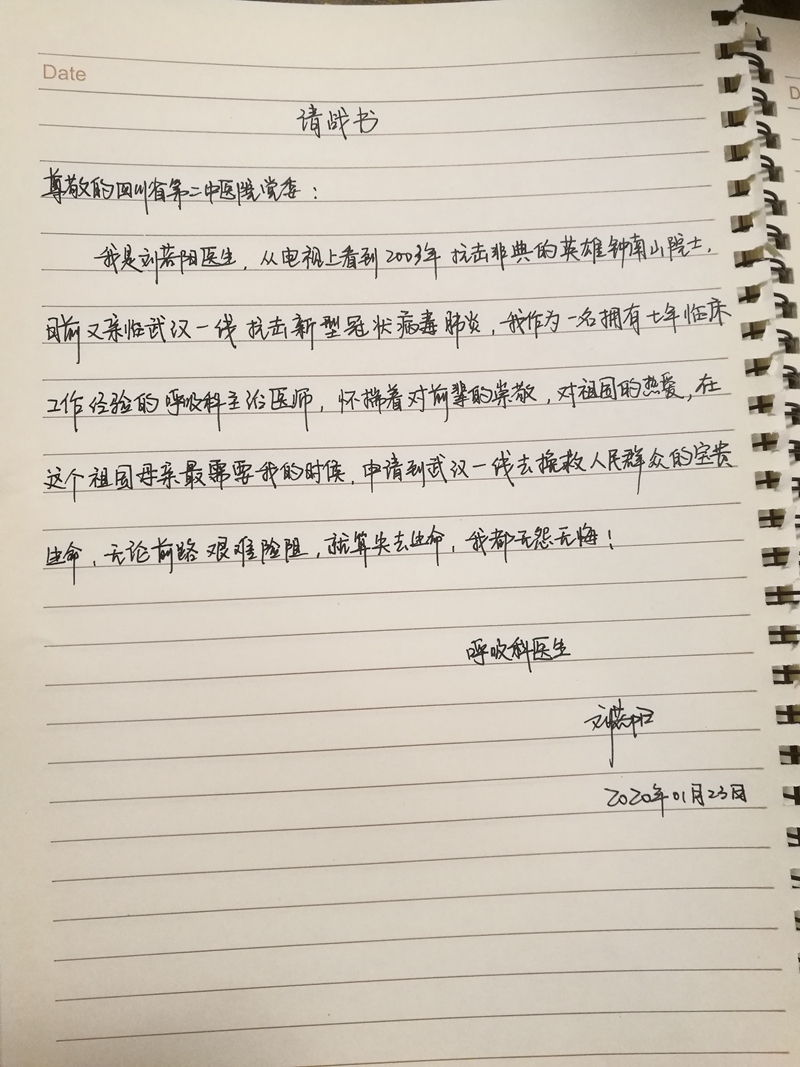 Date
请战书
尊敬的四川省第二中医院党委：
我是刘若阳医生，从电视上看到2003年抗击非典的英雄钟南山院士，
目前又亲临武汉一线抗击新型冠状病毒肺炎，我作为一名拥有七年临床
工作经验的呼吸科主治医师，怀揣着对前辈的崇敬，对祖国的热爱，在
这个祖国母亲最需要我的时候，申请到武汉一线去挽救人民群众的宝贵
生命，无论前路艰难险阻，就算失去生命，我都无怨无悔！
呼吸科医生
刘若阳
2020年01月23日
D